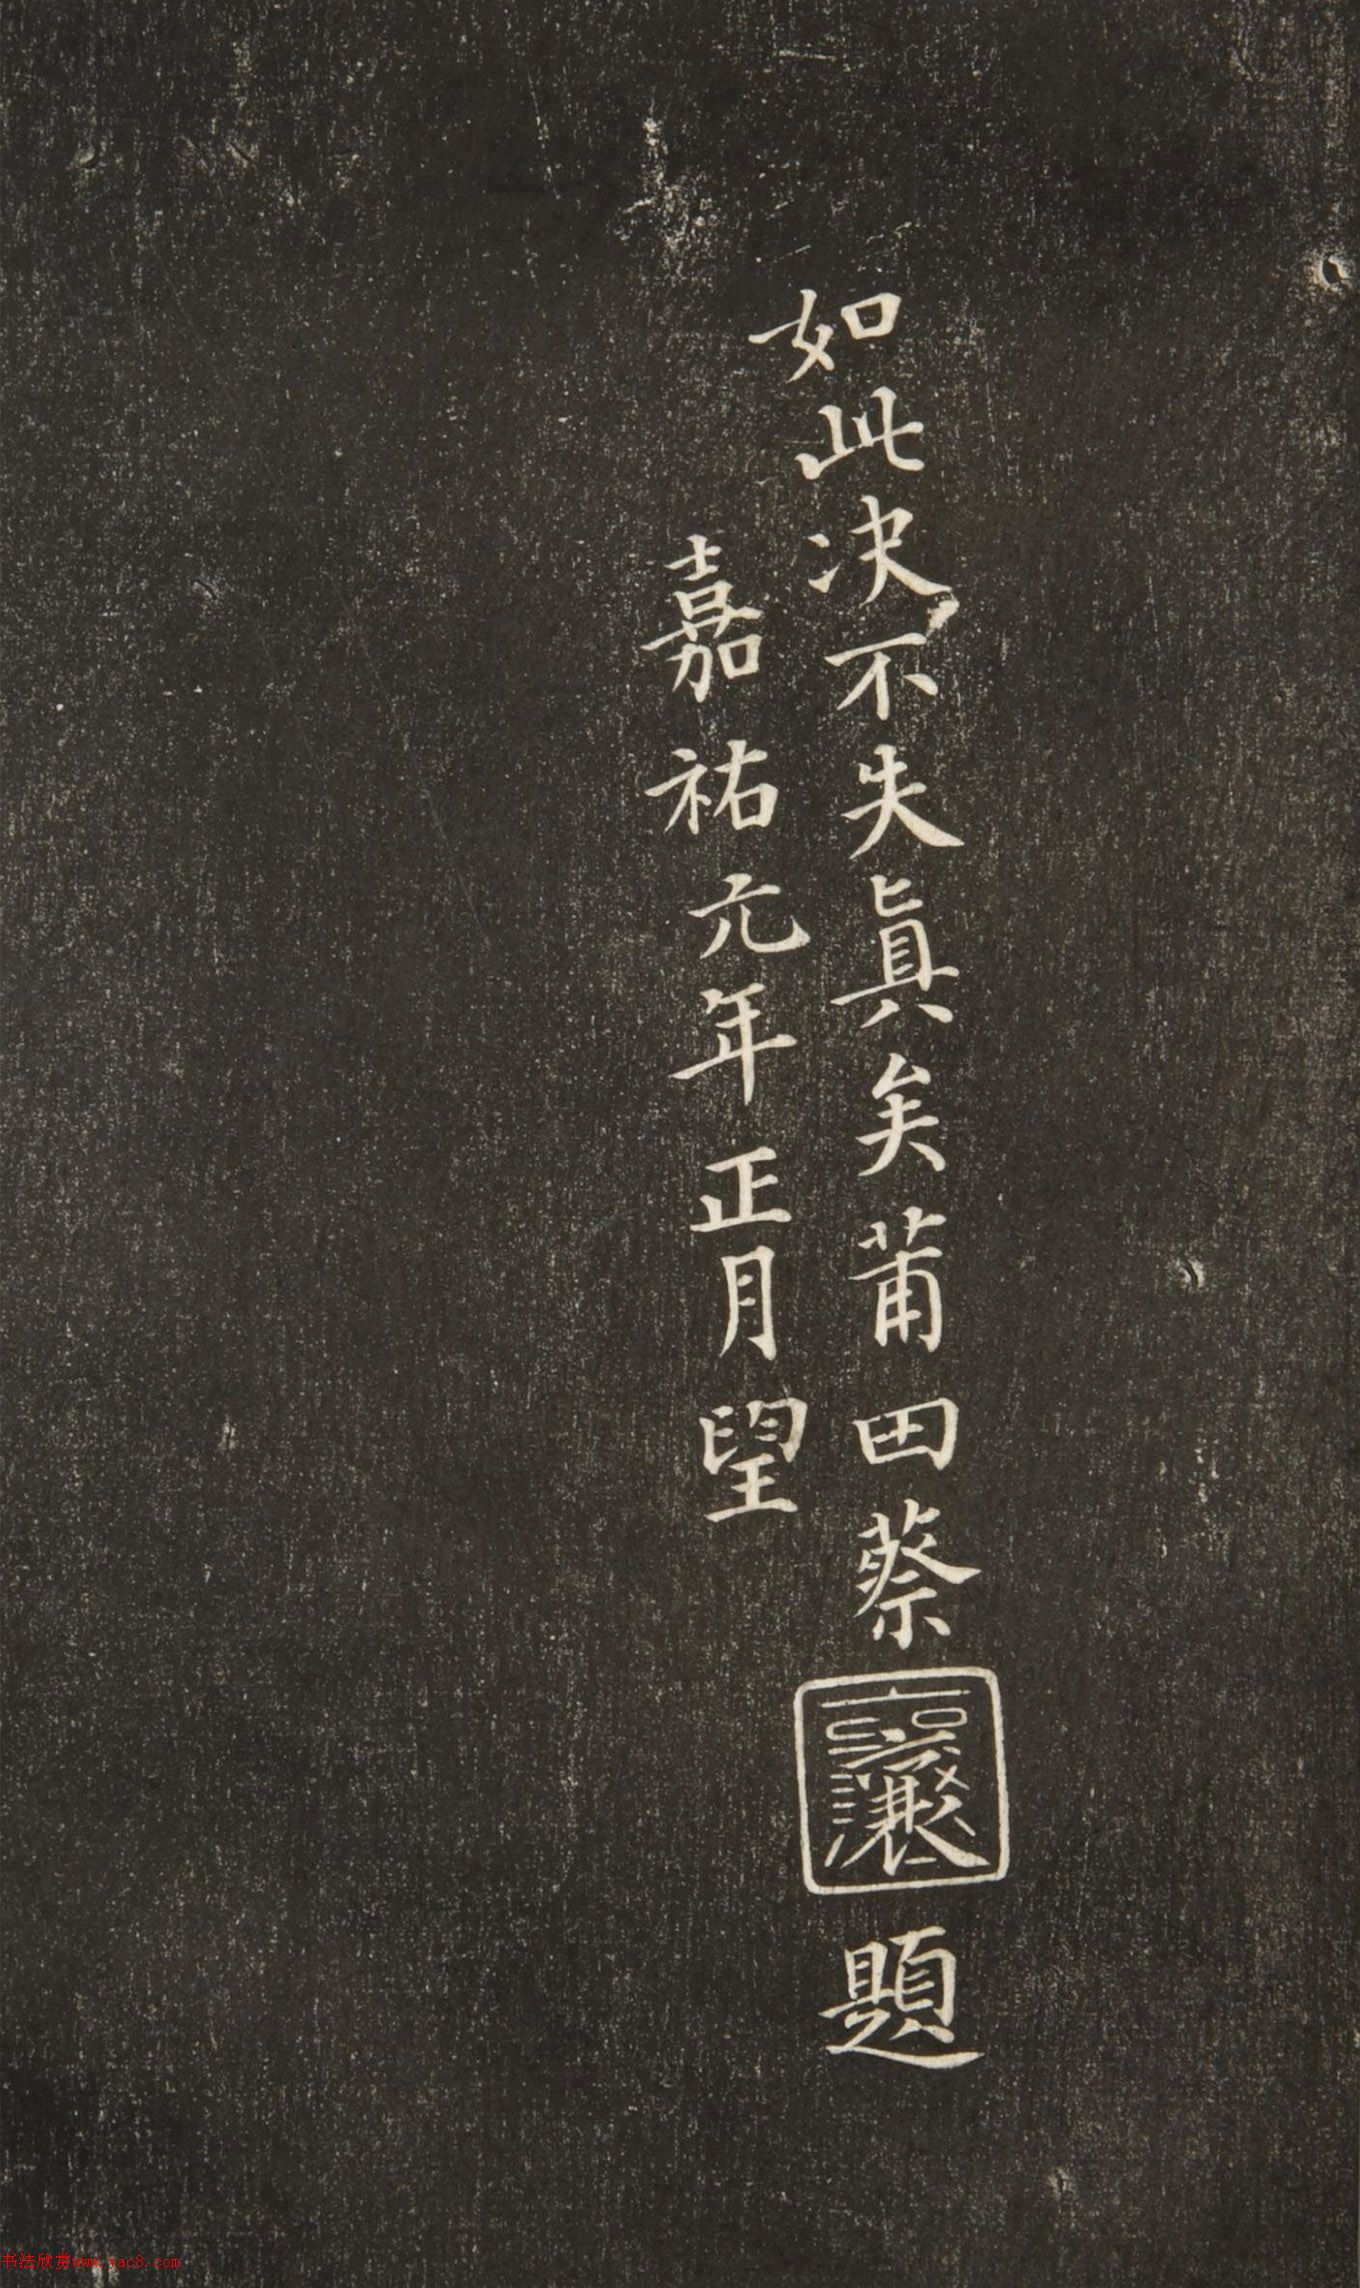 如此决不失眞矣莆田蔡襄題
嘉祐元年正月望
书法欣赏www.yac8.com